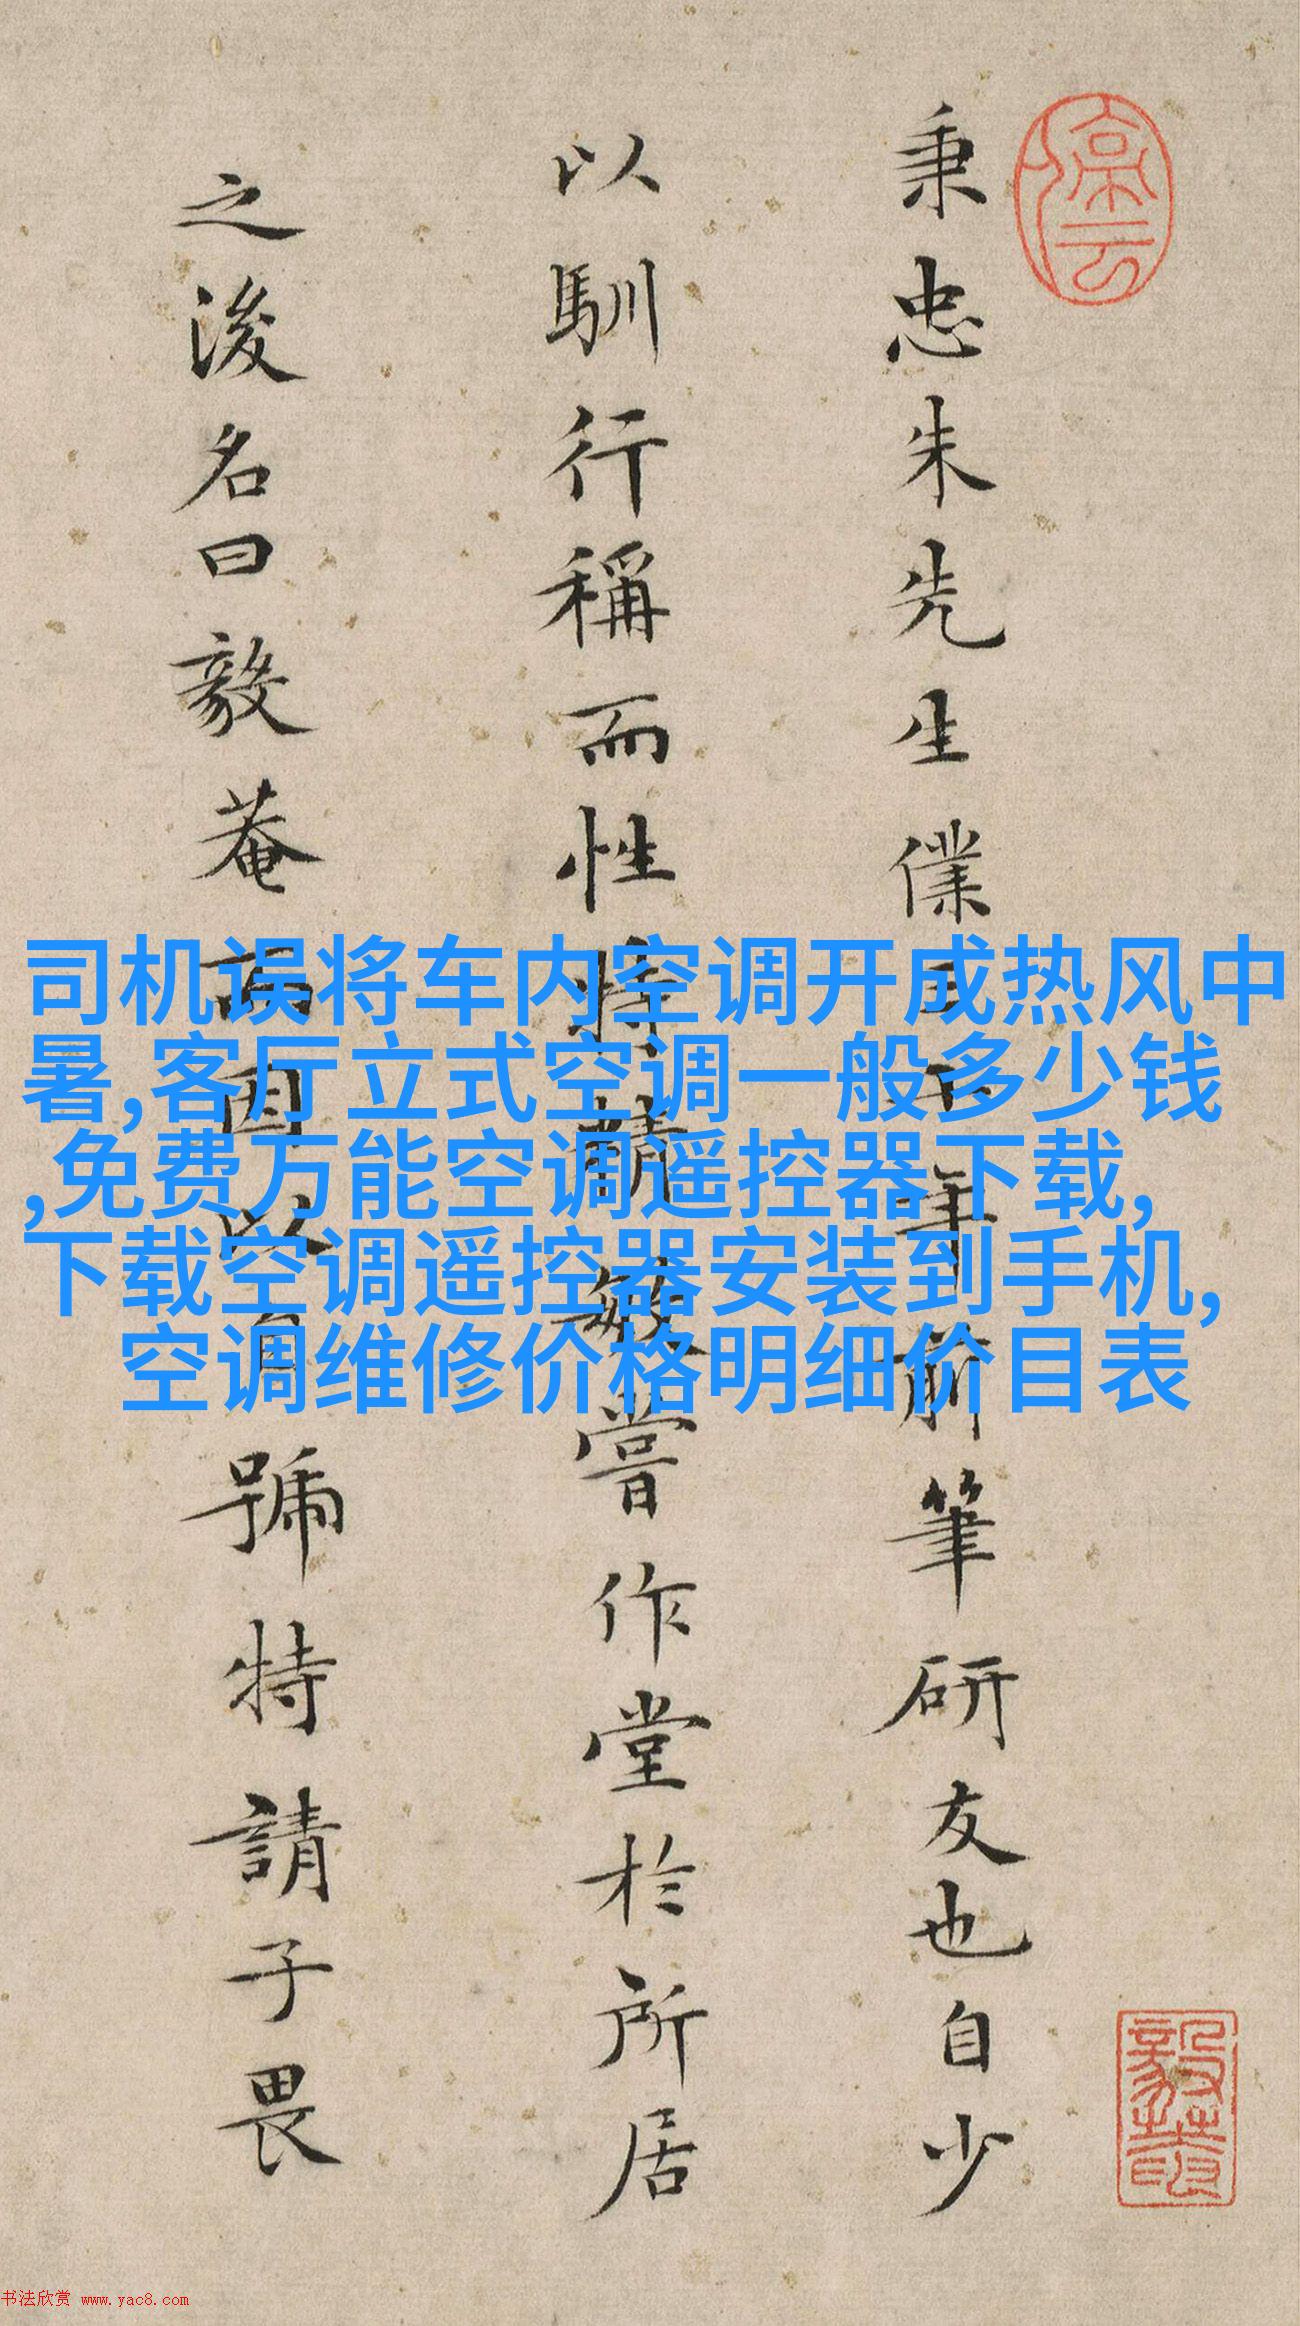 秉忠朱先生僕三十年前筆研友也自少
以馴行稱而性特精敏嘗作堂於所居
之浚名曰毅菴而因以自號特請子畏
司机误将车内空调开成热风中
暑,客厅立式空调一般多少钱
,免费万能空调遥控器下载,
下载空调遥控器安装到手机,
空调维修价格明细价目表
书法欣赏 www.yac8.com